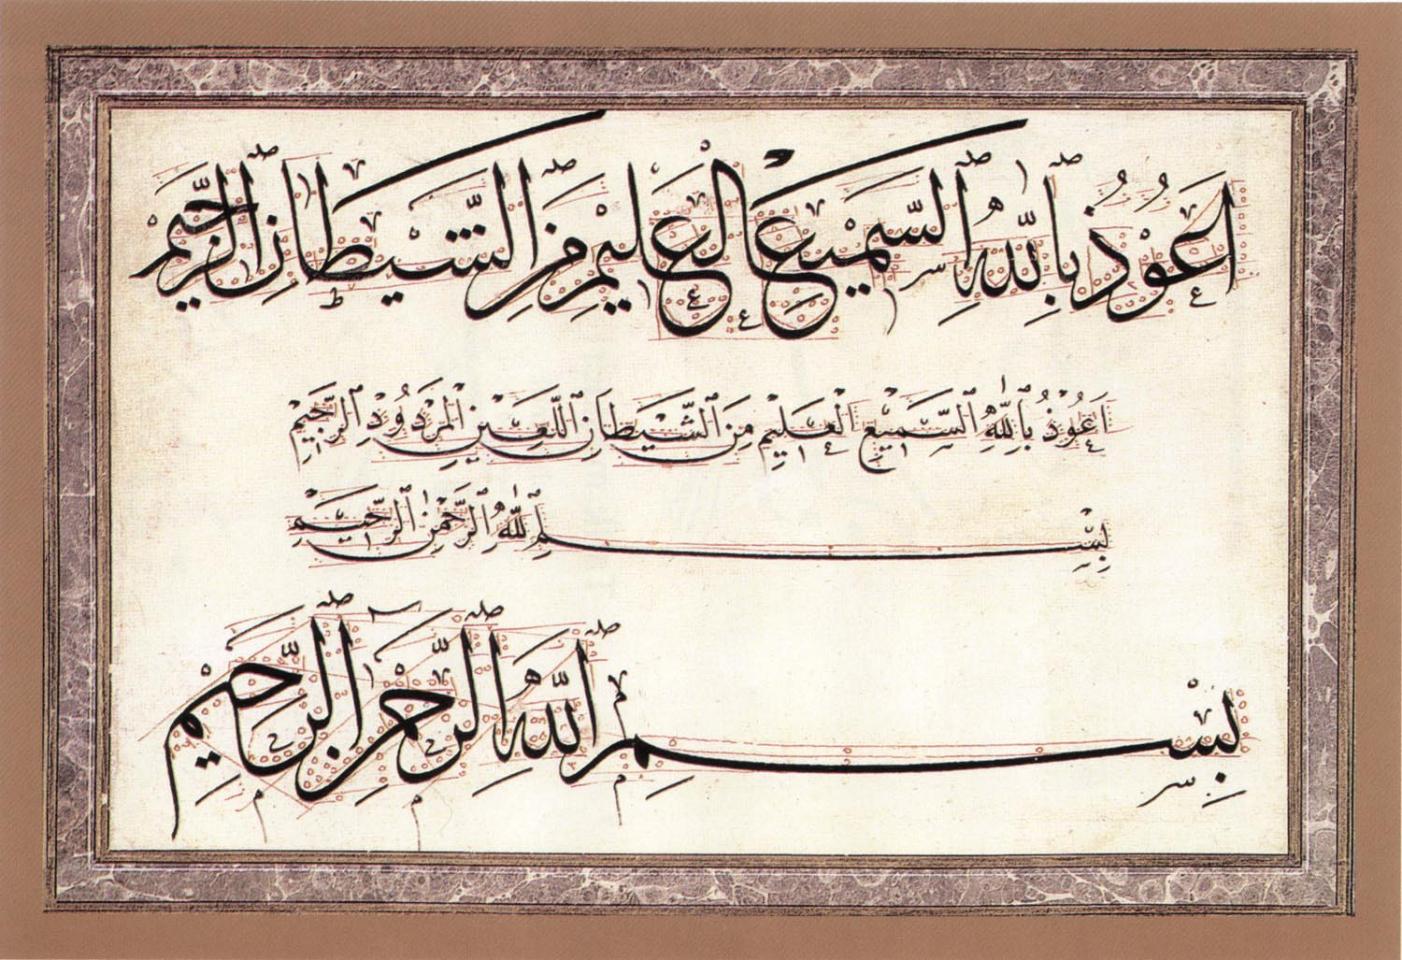 اَعُوذُ بِاللّٰهِ السَّمِيعِ الْعَلِيمِ مِنَ الشَّيْطَانِ الرَّجِيمِ
اَعُوذُ بِاللّٰهِ السَّمِيعِ الْعَلِيمِ مِنَ الشَّيْطَانِ اللَّعِينِ الْمَرْدُودِ الرَّجِيمِ
بِسْمِ اللّٰهِ الرَّحْمٰنِ الرَّحِيمِ
بِسْمِ اللّٰهِ الرَّحْمٰنِ الرَّحِيمِ